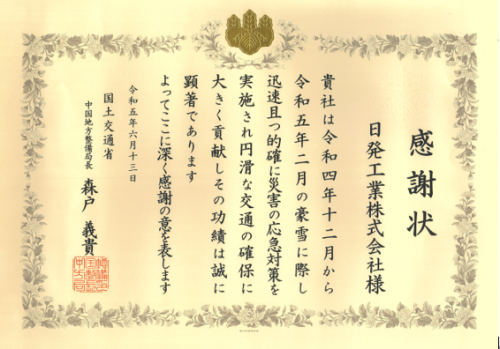 感謝状
日発工業株式会社様
貴社は令和四年十二月から
令和五年二月の豪雪に際し
迅速且つ的確に災害の応急対策を
実施され円滑な交通の確保に
大きく貢献しその功績は誠に
顕著であります
よってここに深く感謝の意を表します
令和五年六月十三日
国土交通省
中国地方整備局長 森戸義貴